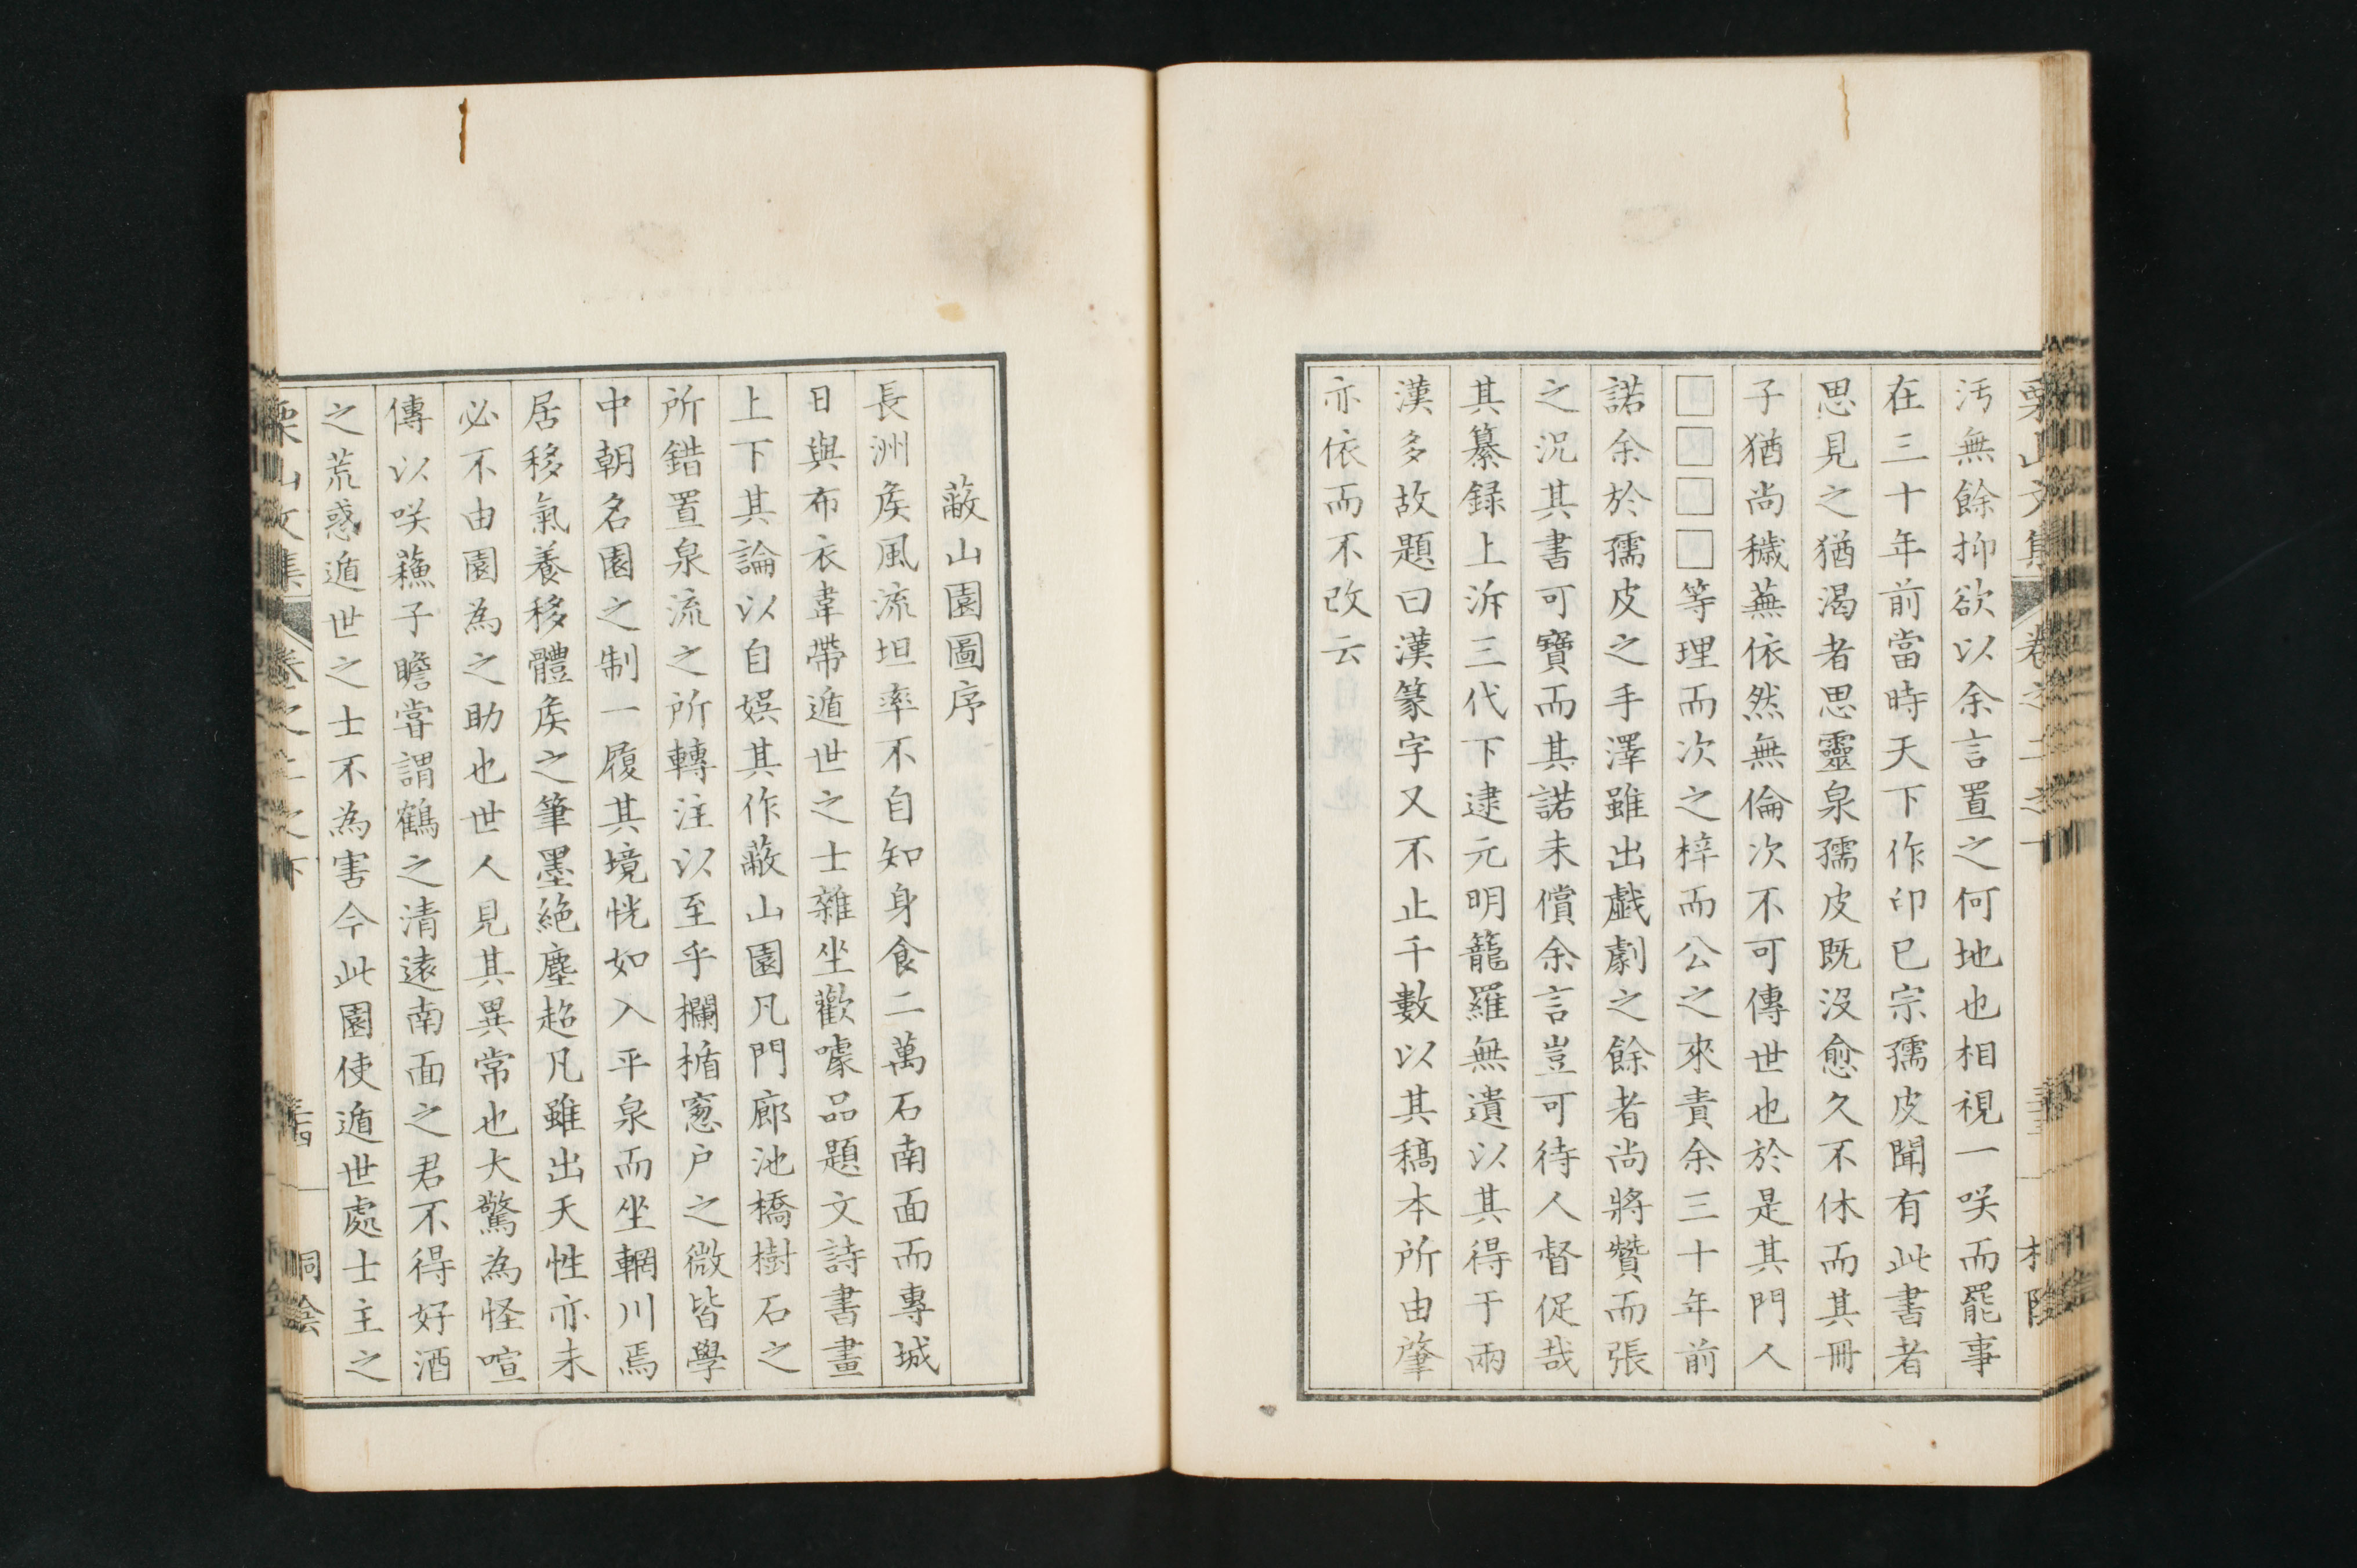 汚無餘抑欲以余言置之何地也相視一咲而罷事
在三十年前當時天下作印已宗孺皮聞有此書者
思見之猶渴者思靈泉孺皮既沒愈久不休而其冊
子猶尚穢蕪依然無倫次不可傳世也於是其門人
□□□□等理而次之梓而公之來責余三十年前
諾余於孺皮之手澤雖出戯劇之餘者尚將贊而張
之況其書可寶而其諾未償余言豈可待人督促哉
其纂録上泝三代下逮元明籠羅無遺以其得于兩
漢多故題曰漢篆字又不止千數以其稿本所由肇
亦依而不改云
蔽山園圖序
長洲矦風流坦率不自知身食二萬石南面而專城
日與布衣韋帶遁世之士雜坐歡噱品題文詩書畫
上下其論以自娯其作蔽山園凡門廊池橋樹石之
所錯置泉流之所轉注以至乎欄楯窓户之微皆學
中朝名園之制一履其境恍如入平泉而坐輞川焉
居移氣養移體矦之筆墨絶塵超凡雖出天性亦未
必不由園為之助也世人見其異常也大驚為怪喧
傳以咲蘓子瞻甞謂鶴之清遠南面之君不得好酒
之荒惑遁世之士不為害今此園使遁世處士主之
栗山文集 卷之二之下 三十四